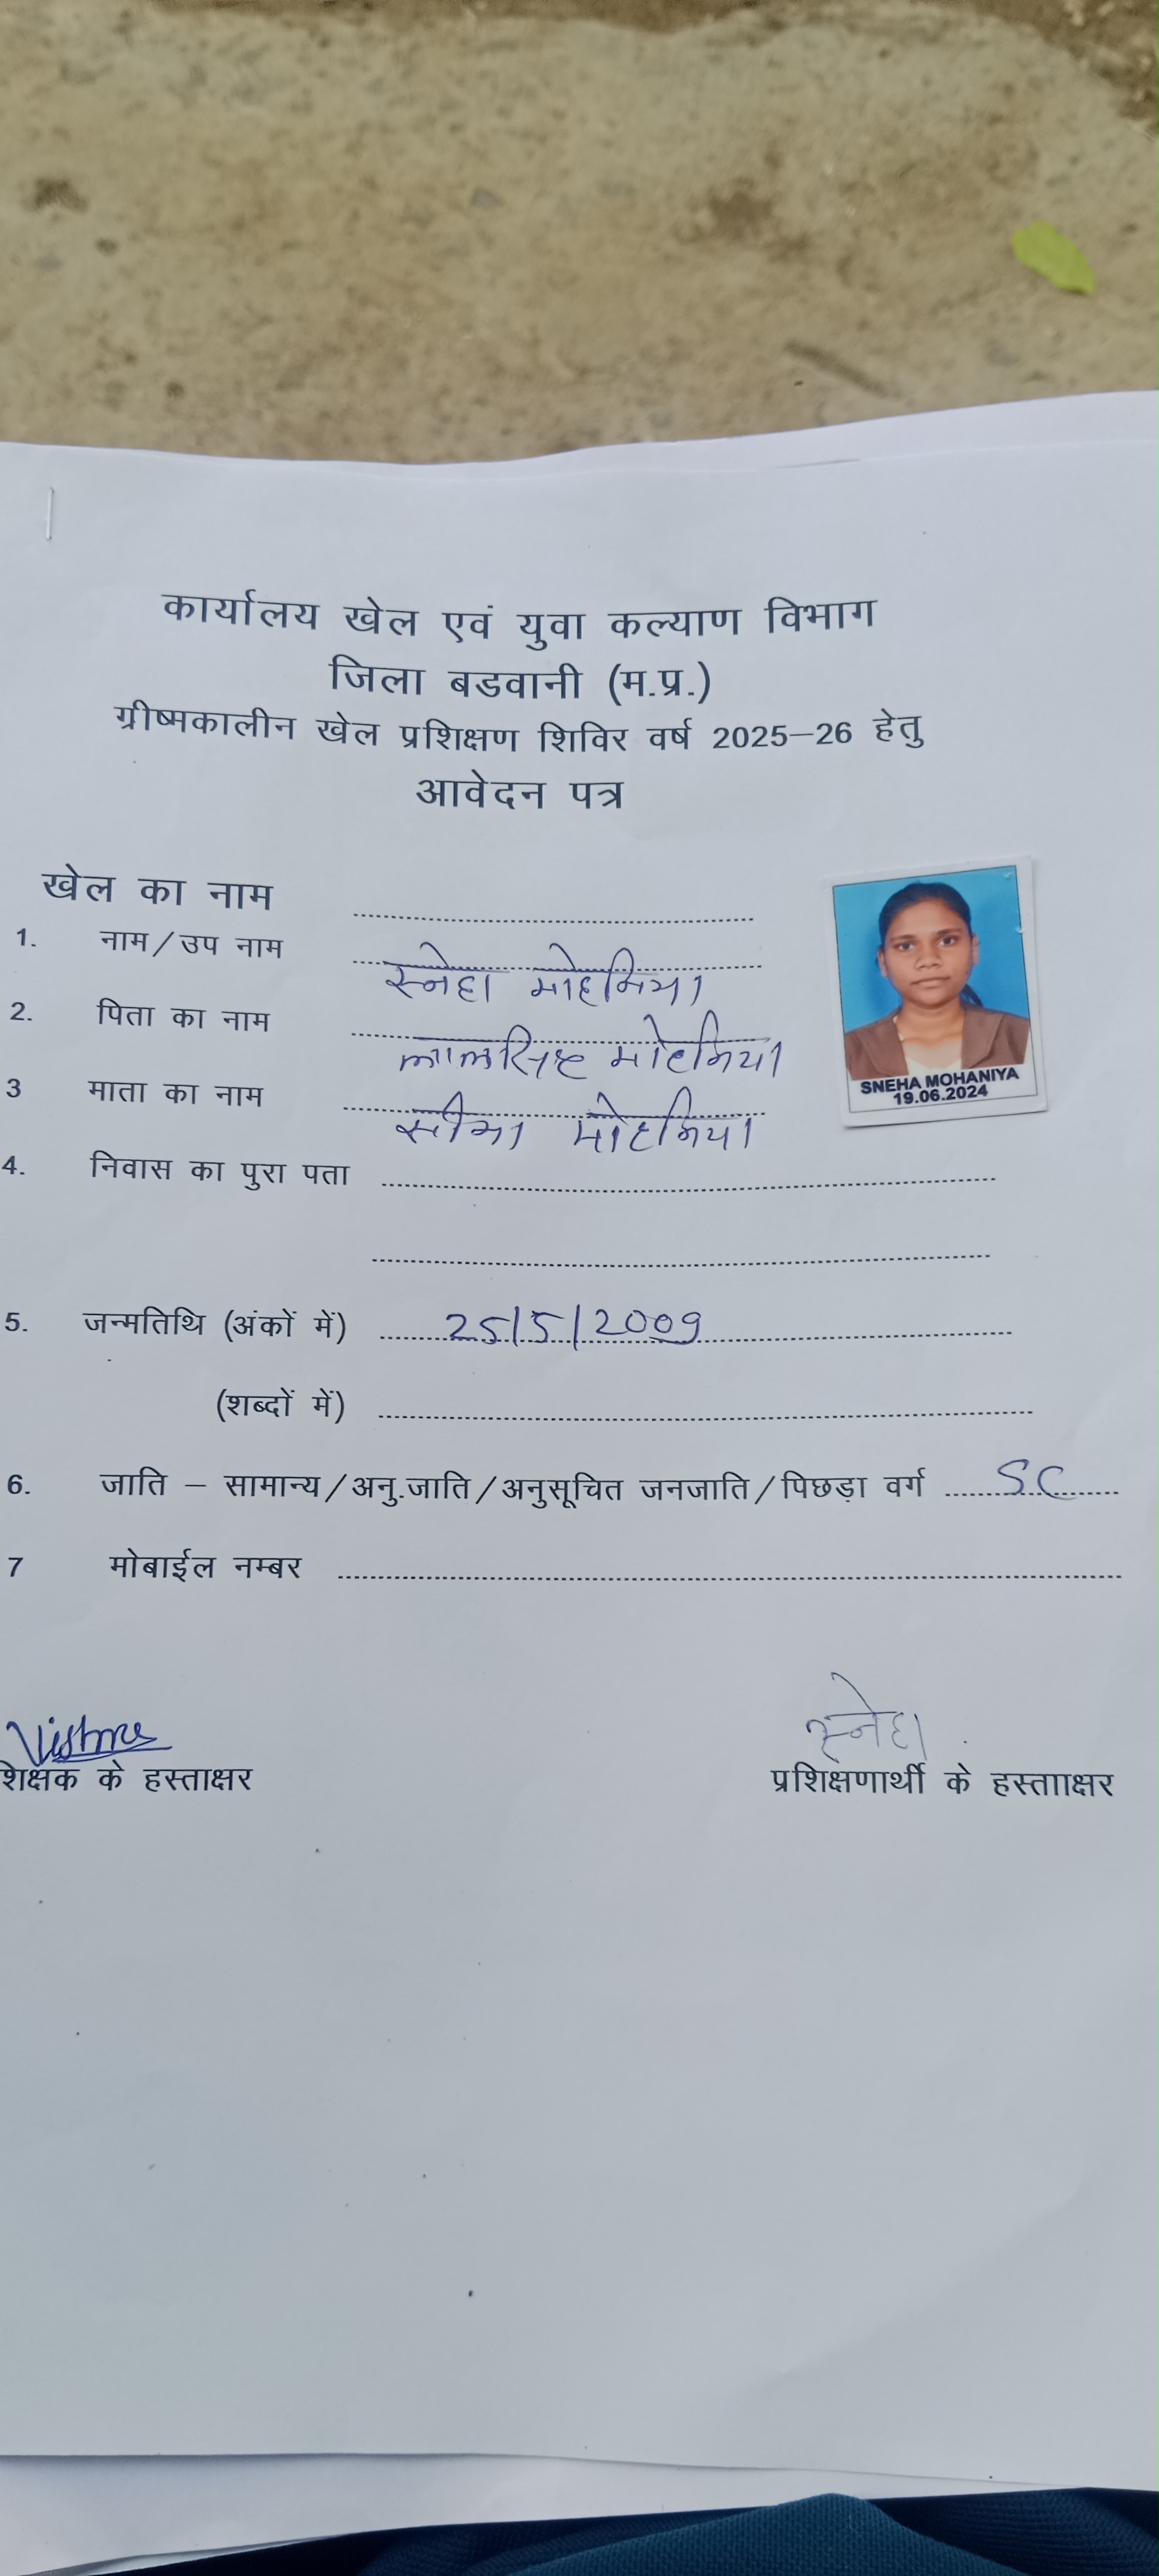 कार्यालय खेल एवं युवा कल्याण विभाग
जिला बडवानी (म.प्र.)
ग्रीष्मकालीन खेल प्रशिक्षण शिविर वर्ष 2025–26 हेतु
आवेदन पत्र
खेल का नाम
1. नाम/उप नाम स्नेहा मोहनिया
2. पिता का नाम लालसिंह मोहनिया
3 माता का नाम सीमा मोहनिया
SNEHA MOHANIYA
19.06.2024
4. निवास का पुरा पता
5. जन्मतिथि (अंकों में) 25/5/2009
(शब्दों में)
6. जाति – सामान्य/अनु.जाति/अनुसूचित जनजाति/पिछड़ा वर्ग SC
7 मोबाईल नम्बर
स्नेहा
शिक्षक के हस्ताक्षर प्रशिक्षणार्थी के हस्तााक्षर